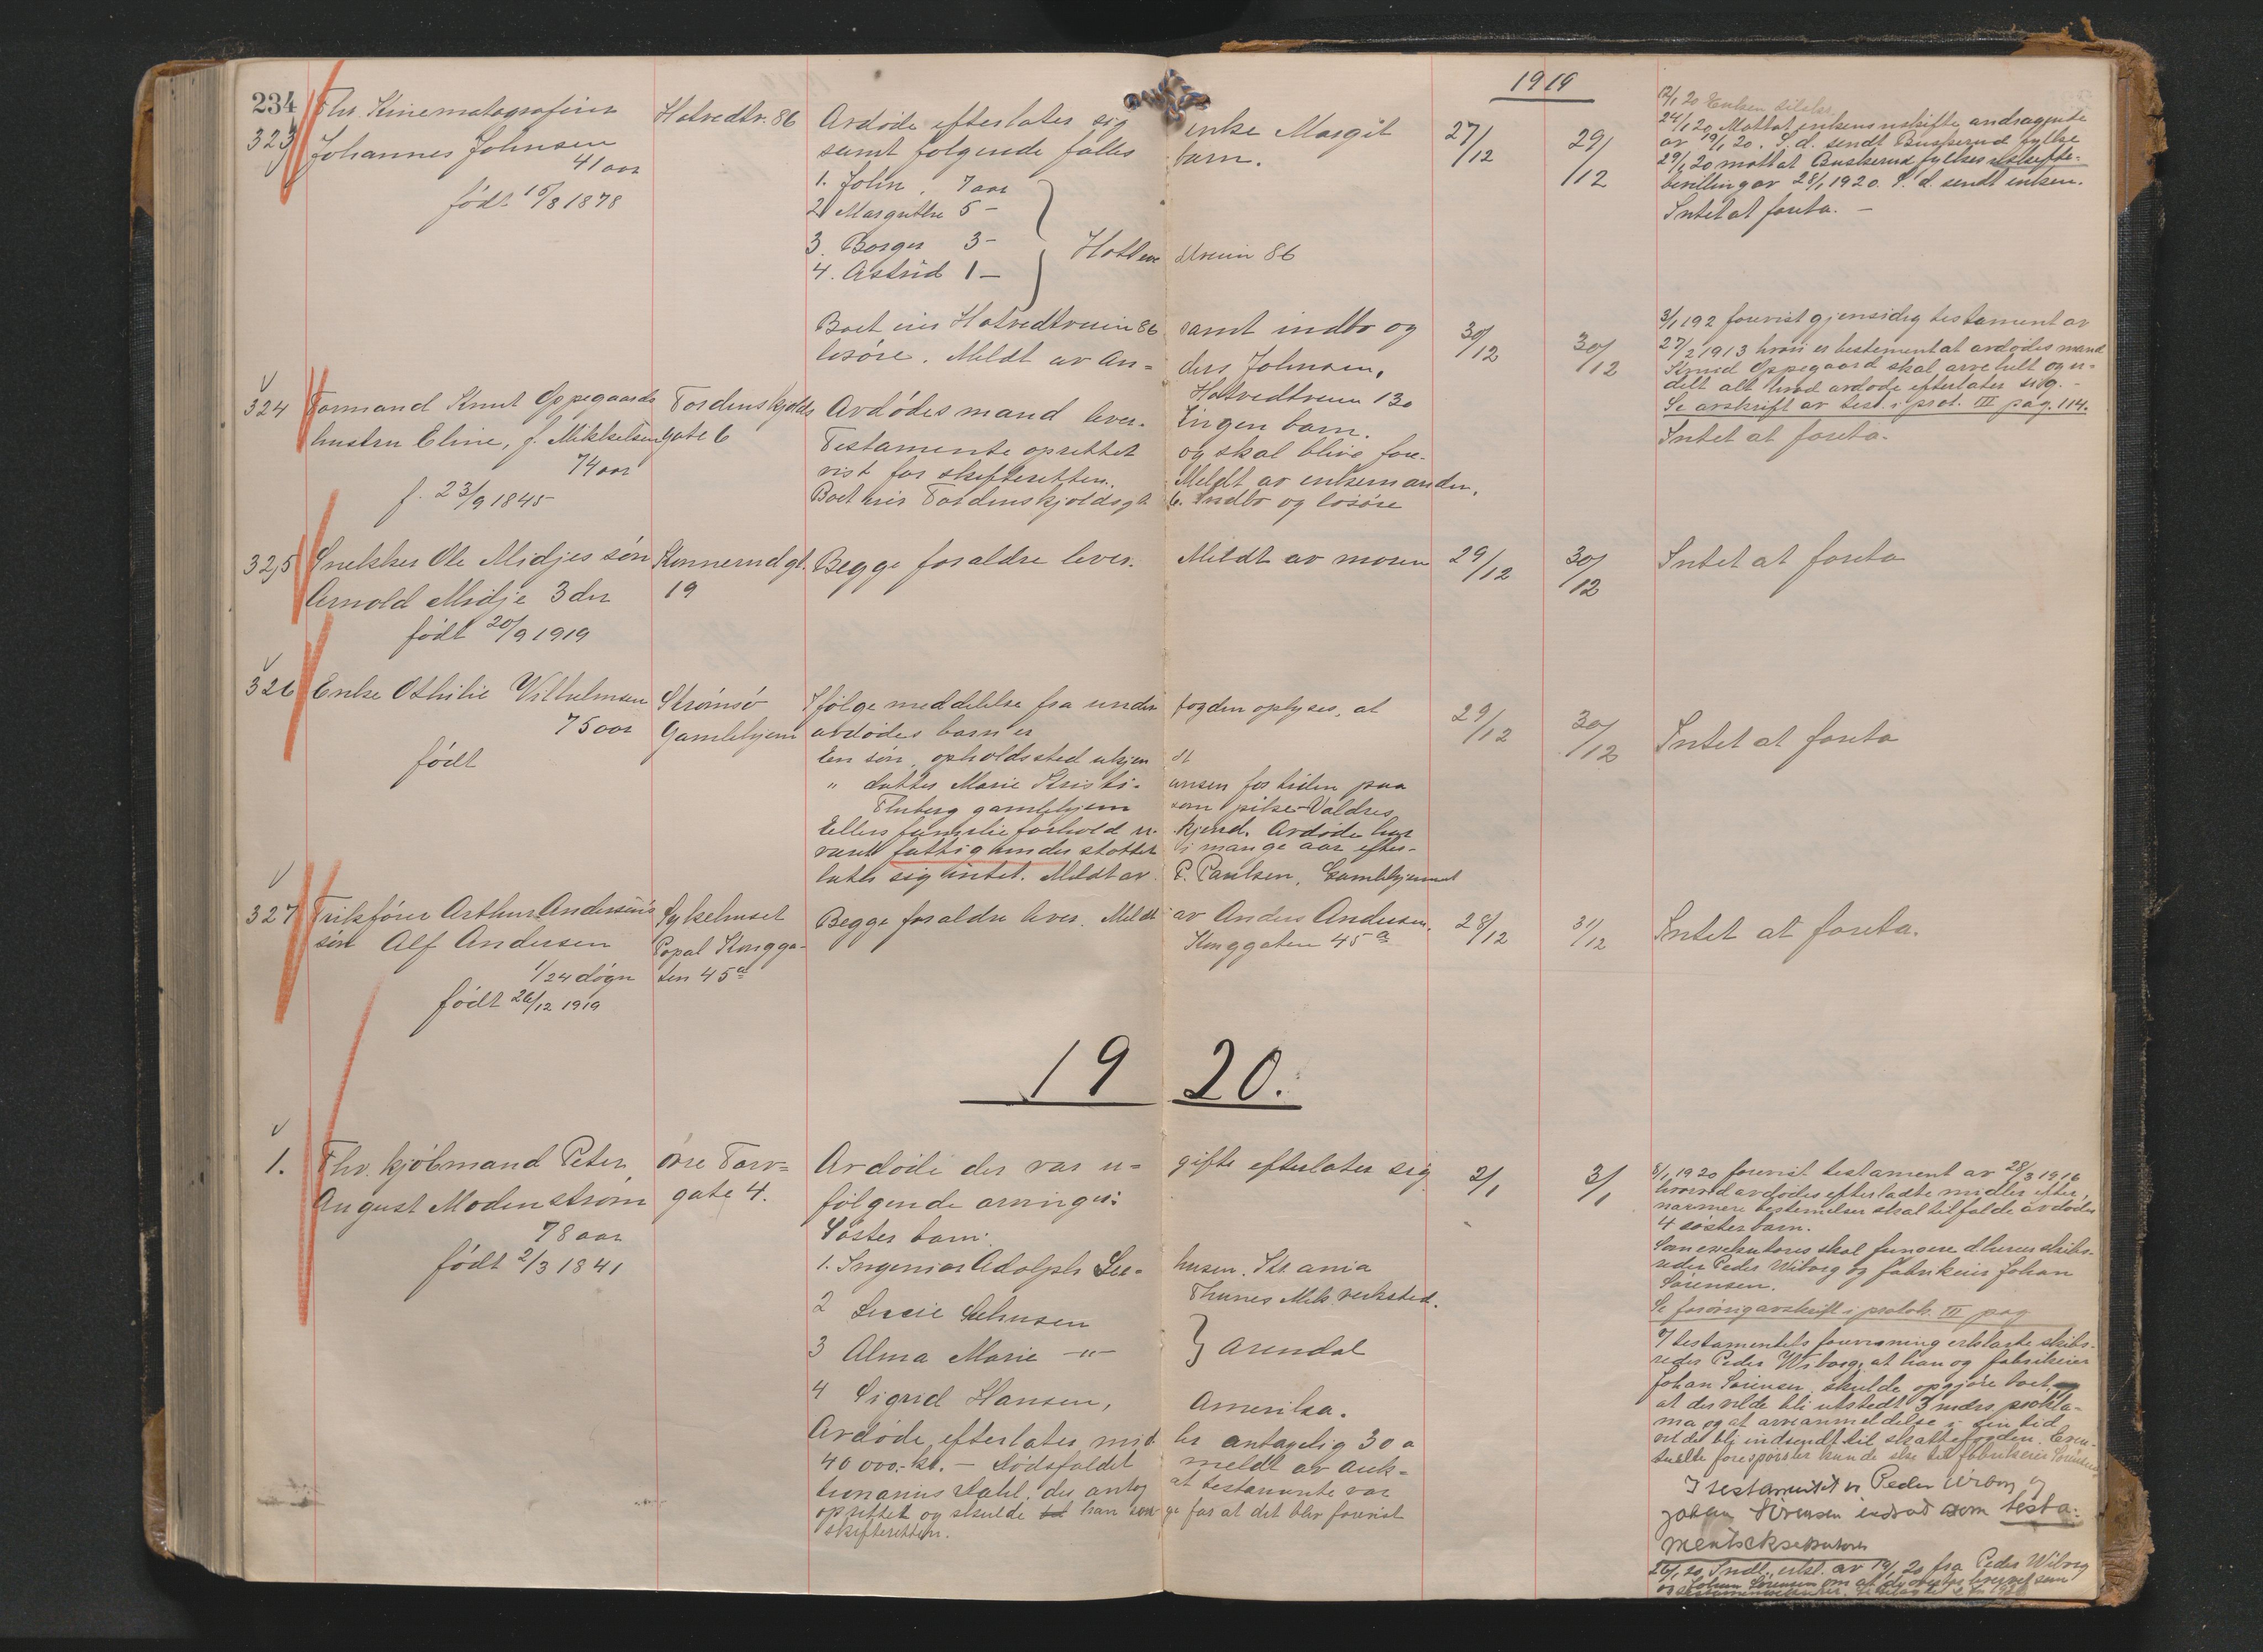 234
1919
323 Fhv. Kinematografeier Hotvedtv. 86 Avdøde efterlater sig enke Margit 27/12 29/12
Johannes Johnsen samt følgende fælles barn.
41 aar
født 15/8 1878
1. John, 7 aar
2 Margrethe 5 —
3. Borger 3 — Hotvedtveien 86
4. Astrid 1 —
Boet eier Hotvedtveien 86 samt indbo og 30/12 30/12
løsøre. Meldt av Anders Johnsen,
Hotvedtveien 130
12/1 20 Enken
24/1 20 Mottat enkens uskifte andragende
av 19/1 20. S. d. sendt Buskerud fylke
29/1 20 mottat Buskerud fylkes uskifte-
bevilling av 28/1 1920. S. d. sendt enken.
Intet at foreta. —
324 Formand Knut Oppegaards Tordenskjolds Avdødes mand lever. Ingen barn.
hustru Eline, f. Mikkelsen gate 6 Testamente oprettet og skal blive fore-
74 aar vist for skifteretten. Meldt av enkemanden.
f. 23/9 1845 Boet eier Tordenskjoldsgt 6. Indbo og løsøre
3/1 192 forevist gjensidig testament av
27/2 1913 hvori er bestemt at avdødes mand
Knud Oppegaard skal arve helt og u-
delt alt hvad avdøde efterlater sig. —
Se avskrift av test. i prot. III pag. 114.
Intet at foreta.
325 Snekker Ole Midjes søn Konnerudgt. Begge forældre lever. Meldt av moren 29/12 30/12 Intet at foreta
Arnold Midje 3 dr 19
født 20/9 1919
326 Enke Othilie Vilhelmsen Strømsø Ifølge meddelelse fra underfogden oplyses, at 29/12 30/12 Intet at foreta
75 aar Gamlehjem avdødes barn er
født En søn, opholdssted ukjendt
" datter Marie Kristiansen for tiden paa
Fluberg gamlehjem som pike Valdres
Ellers familieforhold ukjend. Avdøde har
været fattigunderstøttet i mange aar efter-
later sig intet. Meldt av P. Paulsen, Gamlehjemmet
327 Trikfører Arthur Andersens Sykehuset Begge forældre lever. Meldt av Anders Andersen, 28/12 31/12 Intet at foreta.
søn Alf Andersen Popal Konggaten 45 a Konggaten 45 a
1/24 døgn
født 26/12 1919
1920.
1. Fhv. kjøbmand Peter øvre Torv= Avdøde der var u= gifte efterlater sig 2/1 3/1
August Modenstrøm gate 4. følgende arvinger:
78 aar Søster barn:
født 2/3 1841 1. Ingeniør Adolph Seehusen. Kr.ania
Thunes Mek. verksted.
2 Lucie Seehusen
3 Alma Marie —"— } Arendal
4 Sigrid Hansen, Amerika.
Avdøde efterlater midler antagelig 30 a
40 000.- kr. — Dødsfaldet meldt av auk=
tionarius Dahl. der antog at testamente var
oprettet og skulde han sørge for at det blev forevist
skifteretten.
8/1 1920 forevist testament av 28/3 1916
hvorved avdødes efterladte midler efter
nærmere bestemmelser skal tilfalde avdødes
4 søsterbarn.
Som exekutores skal fungere d'herrer skibs-
reder Peder Wiborg og fabrikeier Johan
Sørensen.
Se forøvrig avskrift i protok. III pag
I testamentets forevisning erklærte skibs-
reder Peder Wiborg, at han og fabrikeier
Johan Sørensen skulde opgjøre boet
at der vilde bli utstedt 3 mdrs prokla-
ma og at arveanmeldelse i sin tid
vilde bli indsendt til skattefogden. Even-
tuelle forespørsler kunde ske til fabrikeier Sørensen
I testamentet er Peder Wiborg og
Johan Sørensen indsat som testa-
mentseksekutorer
26/1 20. Indl. erkl. av 19/1 20 fra Peder Wiborg
og Johan Sørensen om at